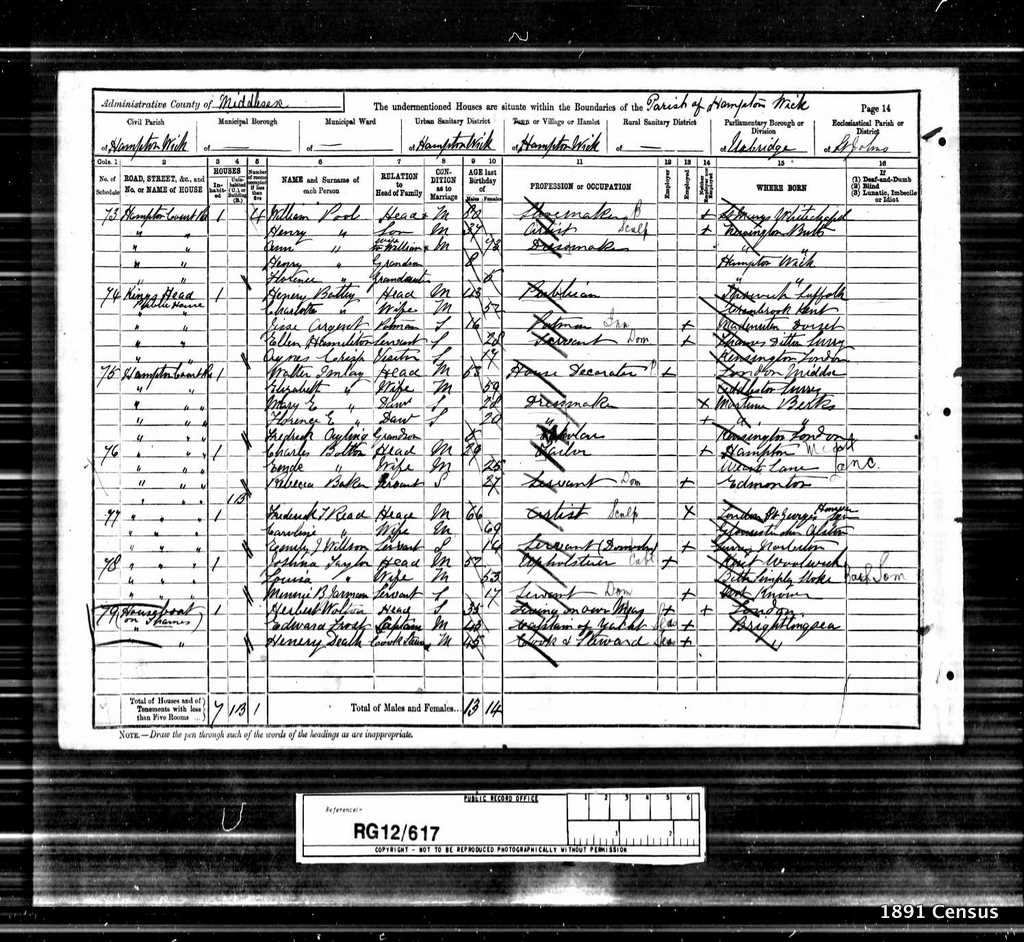 Administrative County of Middlesex
The undermentioned Houses are situate within the Boundaries of the Parish of Hampton Wick
Page 14
Civil Parish
of Hampton Wick
Municipal Borough
of
Municipal Ward
of
Urban Sanitary District
of Hampton Wick
Town or Village or Hamlet
of Hampton Wick
Rural Sanitary District
of
Parliamentary Borough or Division
of Uxbridge
Ecclesiastical Parish or District
of St Johns
Cols. 1 2 3 4 5 6 7 8 9 10 11 12 13 14 15 16
No. of Schedule
ROAD, STREET, &c., and No. or NAME of HOUSE
HOUSES
Inhabited
Uninhabited (U.) or Building (B.)
Number of rooms occupied if less than five
NAME and Surname of each Person
RELATION to Head of Family
CONDITION as to Marriage
AGE last Birthday of
Males Females
PROFESSION or OCCUPATION
Employer
Employed
Neither employer nor employed
WHERE BORN
If
(1) Deaf-and-Dumb
(2) Blind
(3) Lunatic, Imbecile or Idiot
73 Hampton Court 1 4 William Pool Head M 80 Shoemaker + St Marys Whitechapel
" " Henry " Son M 37 Artist Sculp + Kensington
" " Ann " wife to William M Dressmaker " "
" " Henry " Grandson 8 Hampton Wick
" " Florence " 5 " "
74 Kings Head Public House 1 Henery Battey Head M 43 Publican Ipswich Suffolk
" " Charlotte " Wife M 52 Cranbrook Kent
" " Jisse Argent Potman S 16 Potman Inn + Dorset
" " Ellen Hamileton Servant S 28 Servant Dom + Thames Ditton Surry
" " Crisp Visitor S 17 Kensington London
75 Hampton Court 1 Walter Head M 53 House Decorater + London Middsx
" " Elizabeth " Wife M 59 Surrey
" " Mary E " Daur S 28 Dressmaker x Berks
" " Florence E " Daur S 20 " + " "
" " Fredrick Grandson 5 Scholar Kensington London
76 " " 1 Charles Bolton Head M 29 Tailor + Hampton
" " " Wife M 25 Lane Lanc.
" " Rebecca Baker Servant S 27 Servant Dom + Edmonton
" " 1B
77 " " 1 Frederick T Read Head M 66 Artist Sculp x London St Georges Hanover Sqr
" " Caroline " Wife M 69
" " J Willson Servant S 14 Servant (Domestic) + Surrey
78 " " 1 Joshua Taylor Head M 52 Upholsterer + Kent Woolwich
" " Louisa " Wife M 53 Bath Som
" " Minnie B Servant S 17 Servant Dom Not Known
79 Houseboat on Thames 1 Herbert Head S 35 Living on own Means + London
" " Edward Frost Captain M 43 Captain of Yacht + Brightlingsea
" Henery Death Cook M 45 Cook & Steward + "
Total of Houses and of Tenements with less than Five Rooms 7 1B 1
Total of Males and Females... 13 14
NOTE.—Draw the pen through such of the words of the headings as are inappropriate.
PUBLIC RECORD OFFICE
1 2 3 4 5 6
Reference:-
RG12/617
1 2
COPYRIGHT - NOT TO BE REPRODUCED PHOTOGRAPHICALLY WITHOUT PERMISSION
1891 Census